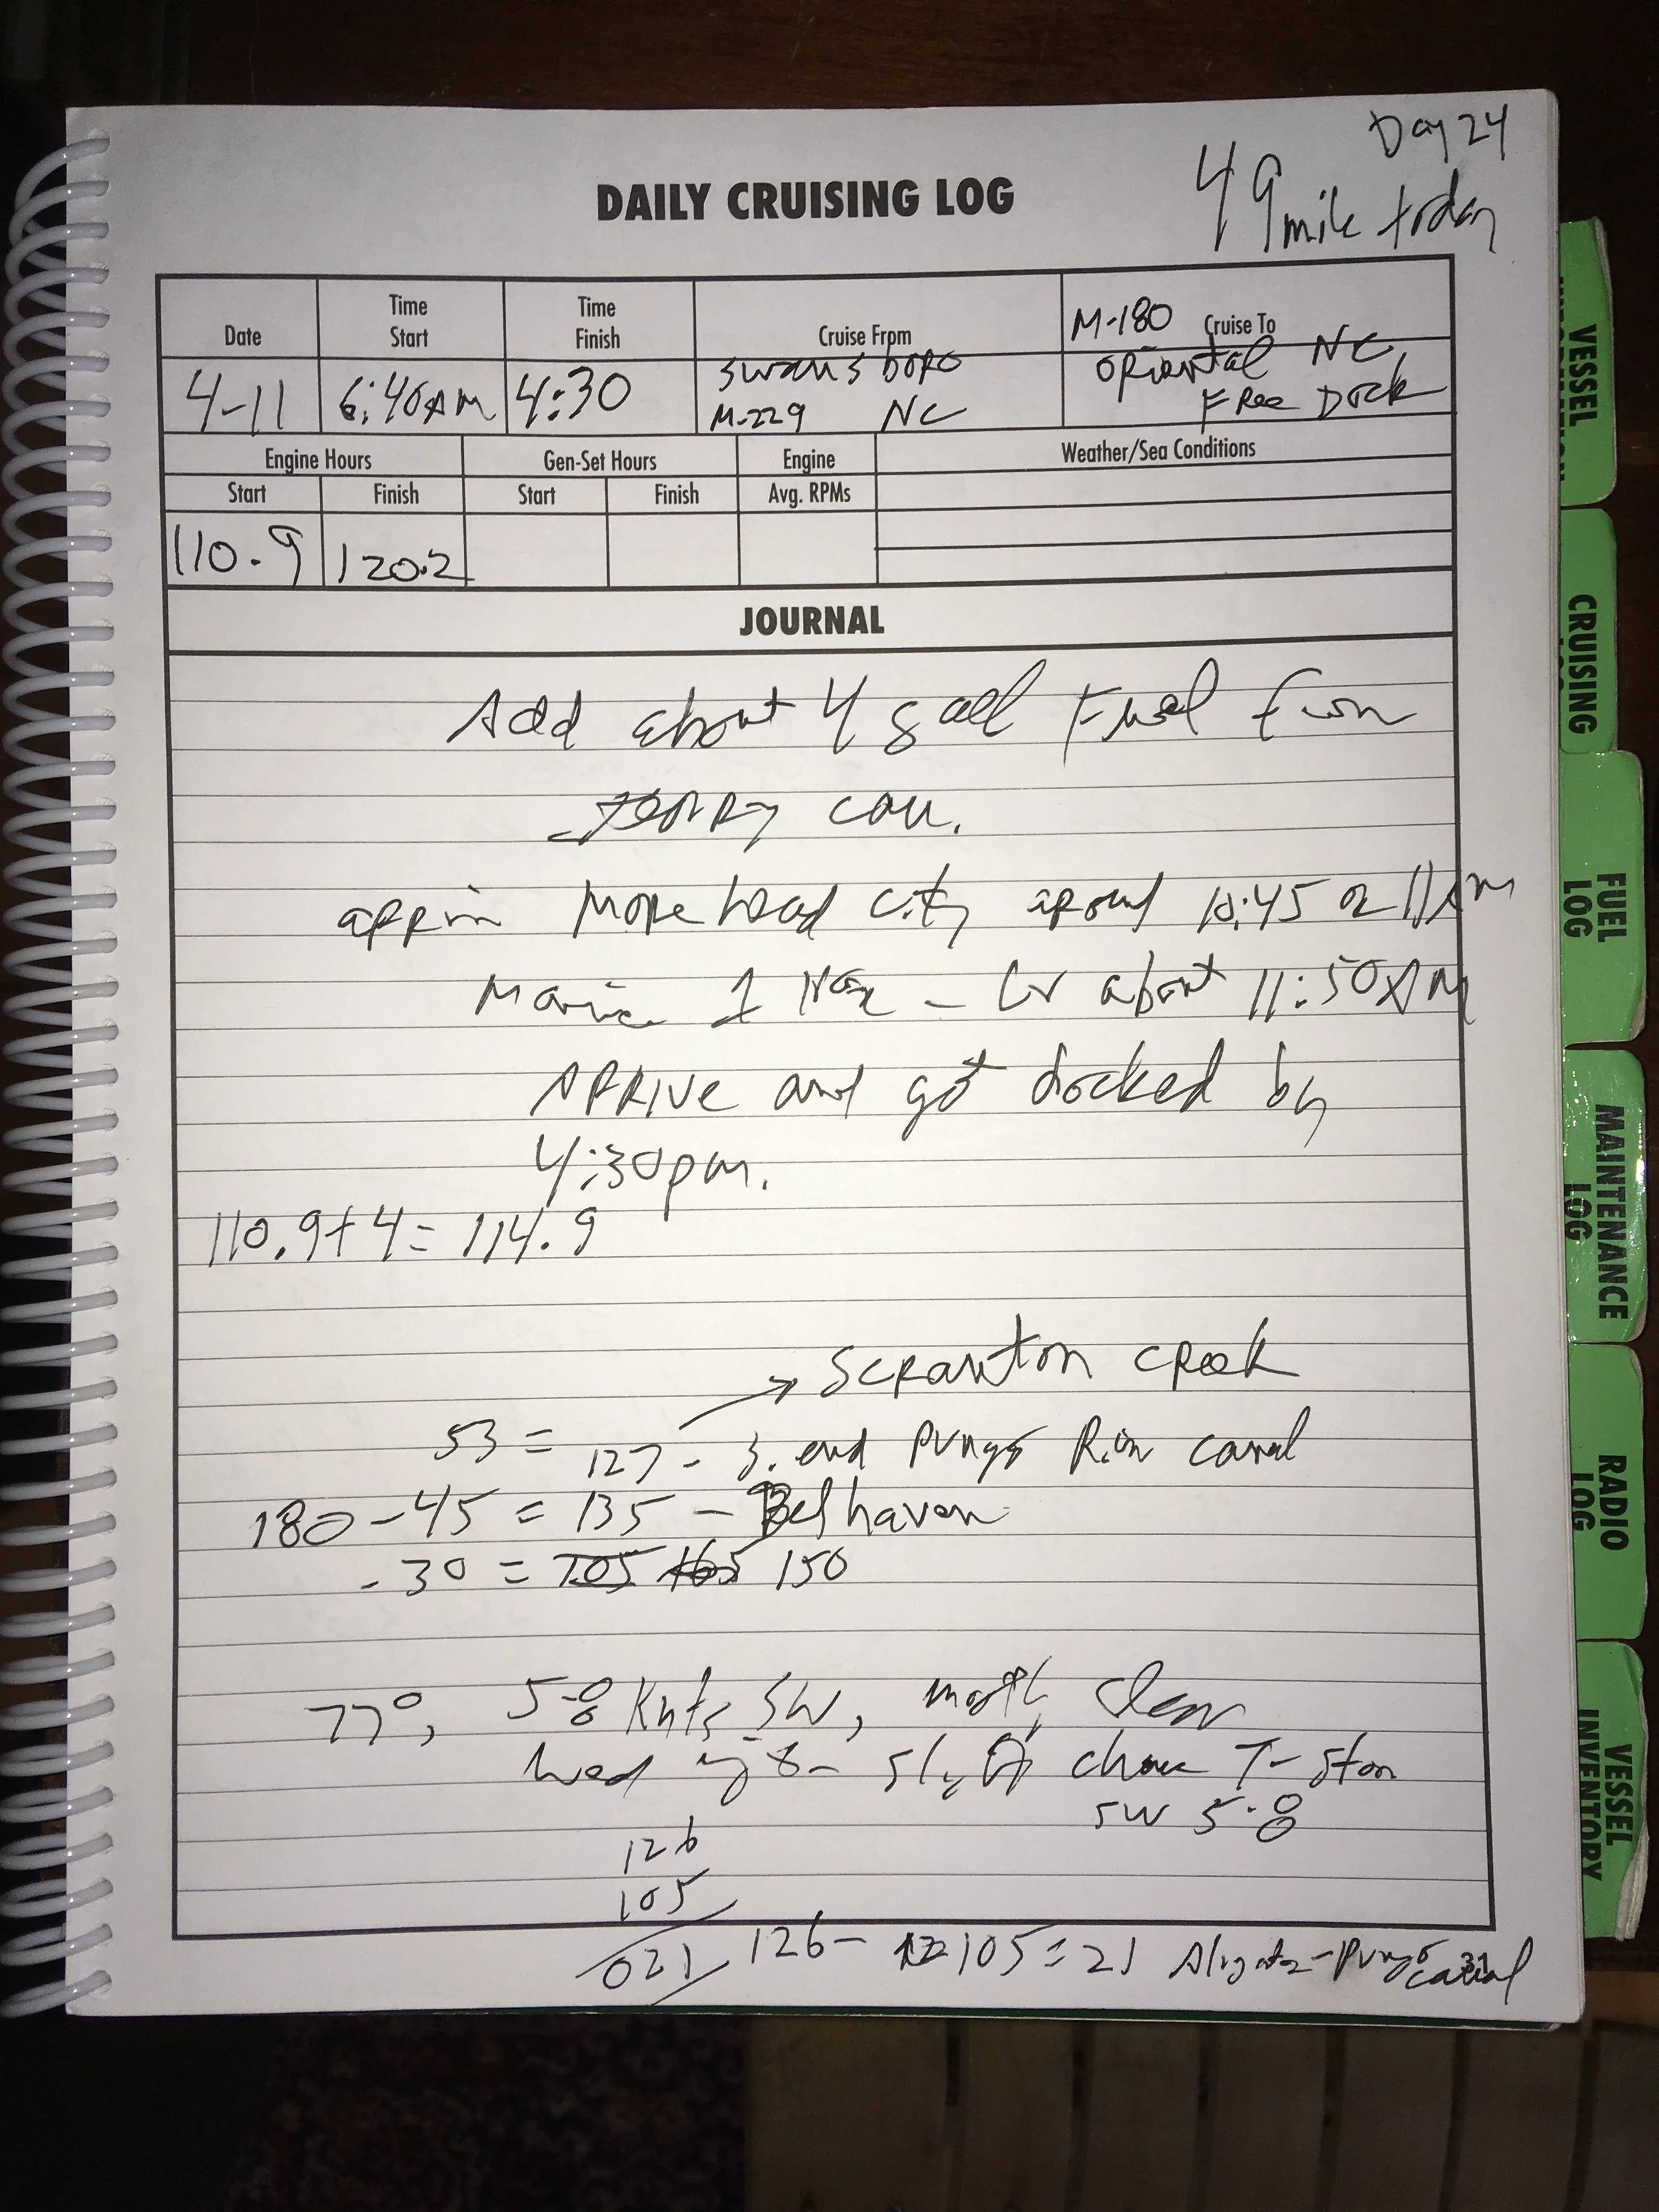 Day 24
49 mile today
DAILY CRUISING LOG
Date
Time Start
Time Finish
Cruise Frpm
M-180 Cruise To
4-11
6:40AM
4:30
Swansboro
M-229 NC
Oriental NC
Free Dock
Engine Hours
Gen-Set Hours
Engine
Weather/Sea Conditions
Start
Finish
Start
Finish
Avg. RPMs
110.9
120.2
JOURNAL
Add about 4 gall Fuel from
Jerry can.
Morehead City around 10:45 or 11AM
about 11:50AM
Arrive and got docked by
4:30pm.
110.9+4= 114.9
→ Scranton Creek
53 = 127 - S. end Pungo canal
180 - 45 = 135 - Belhaven
- 30 = 150
77°, 5-8 Knts SW, mostly clear
chance T-storm
SW 5-8
126
105
021
126 - 105 = 21 Aligator-Pungo canal
31
VESSEL INFORMATION
CRUISING LOG
FUEL LOG
MAINTENANCE LOG
RADIO LOG
VESSEL INVENTORY